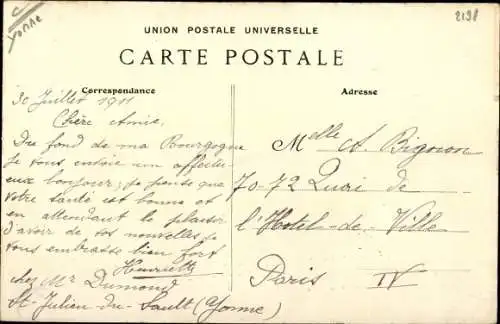 Yonne
2198
UNION POSTALE UNIVERSELLE
CARTE POSTALE
Correspondance
30 Juillet 1911
Chère Amie,
Du fond de ma Bourgogne
je vous envoie un affectu-
eux bonjour; je pense que
votre santé est bonne et
en attendant le plaisir
d'avoir de vos nouvelles je
vous embrasse bien fort
Henriette
chez Mr Dumond
St-Julien-du-Sault (Yonne)
Adresse
Melle A. Bignon
70-72 Quai de
l'Hotel-de-Ville
Paris IV